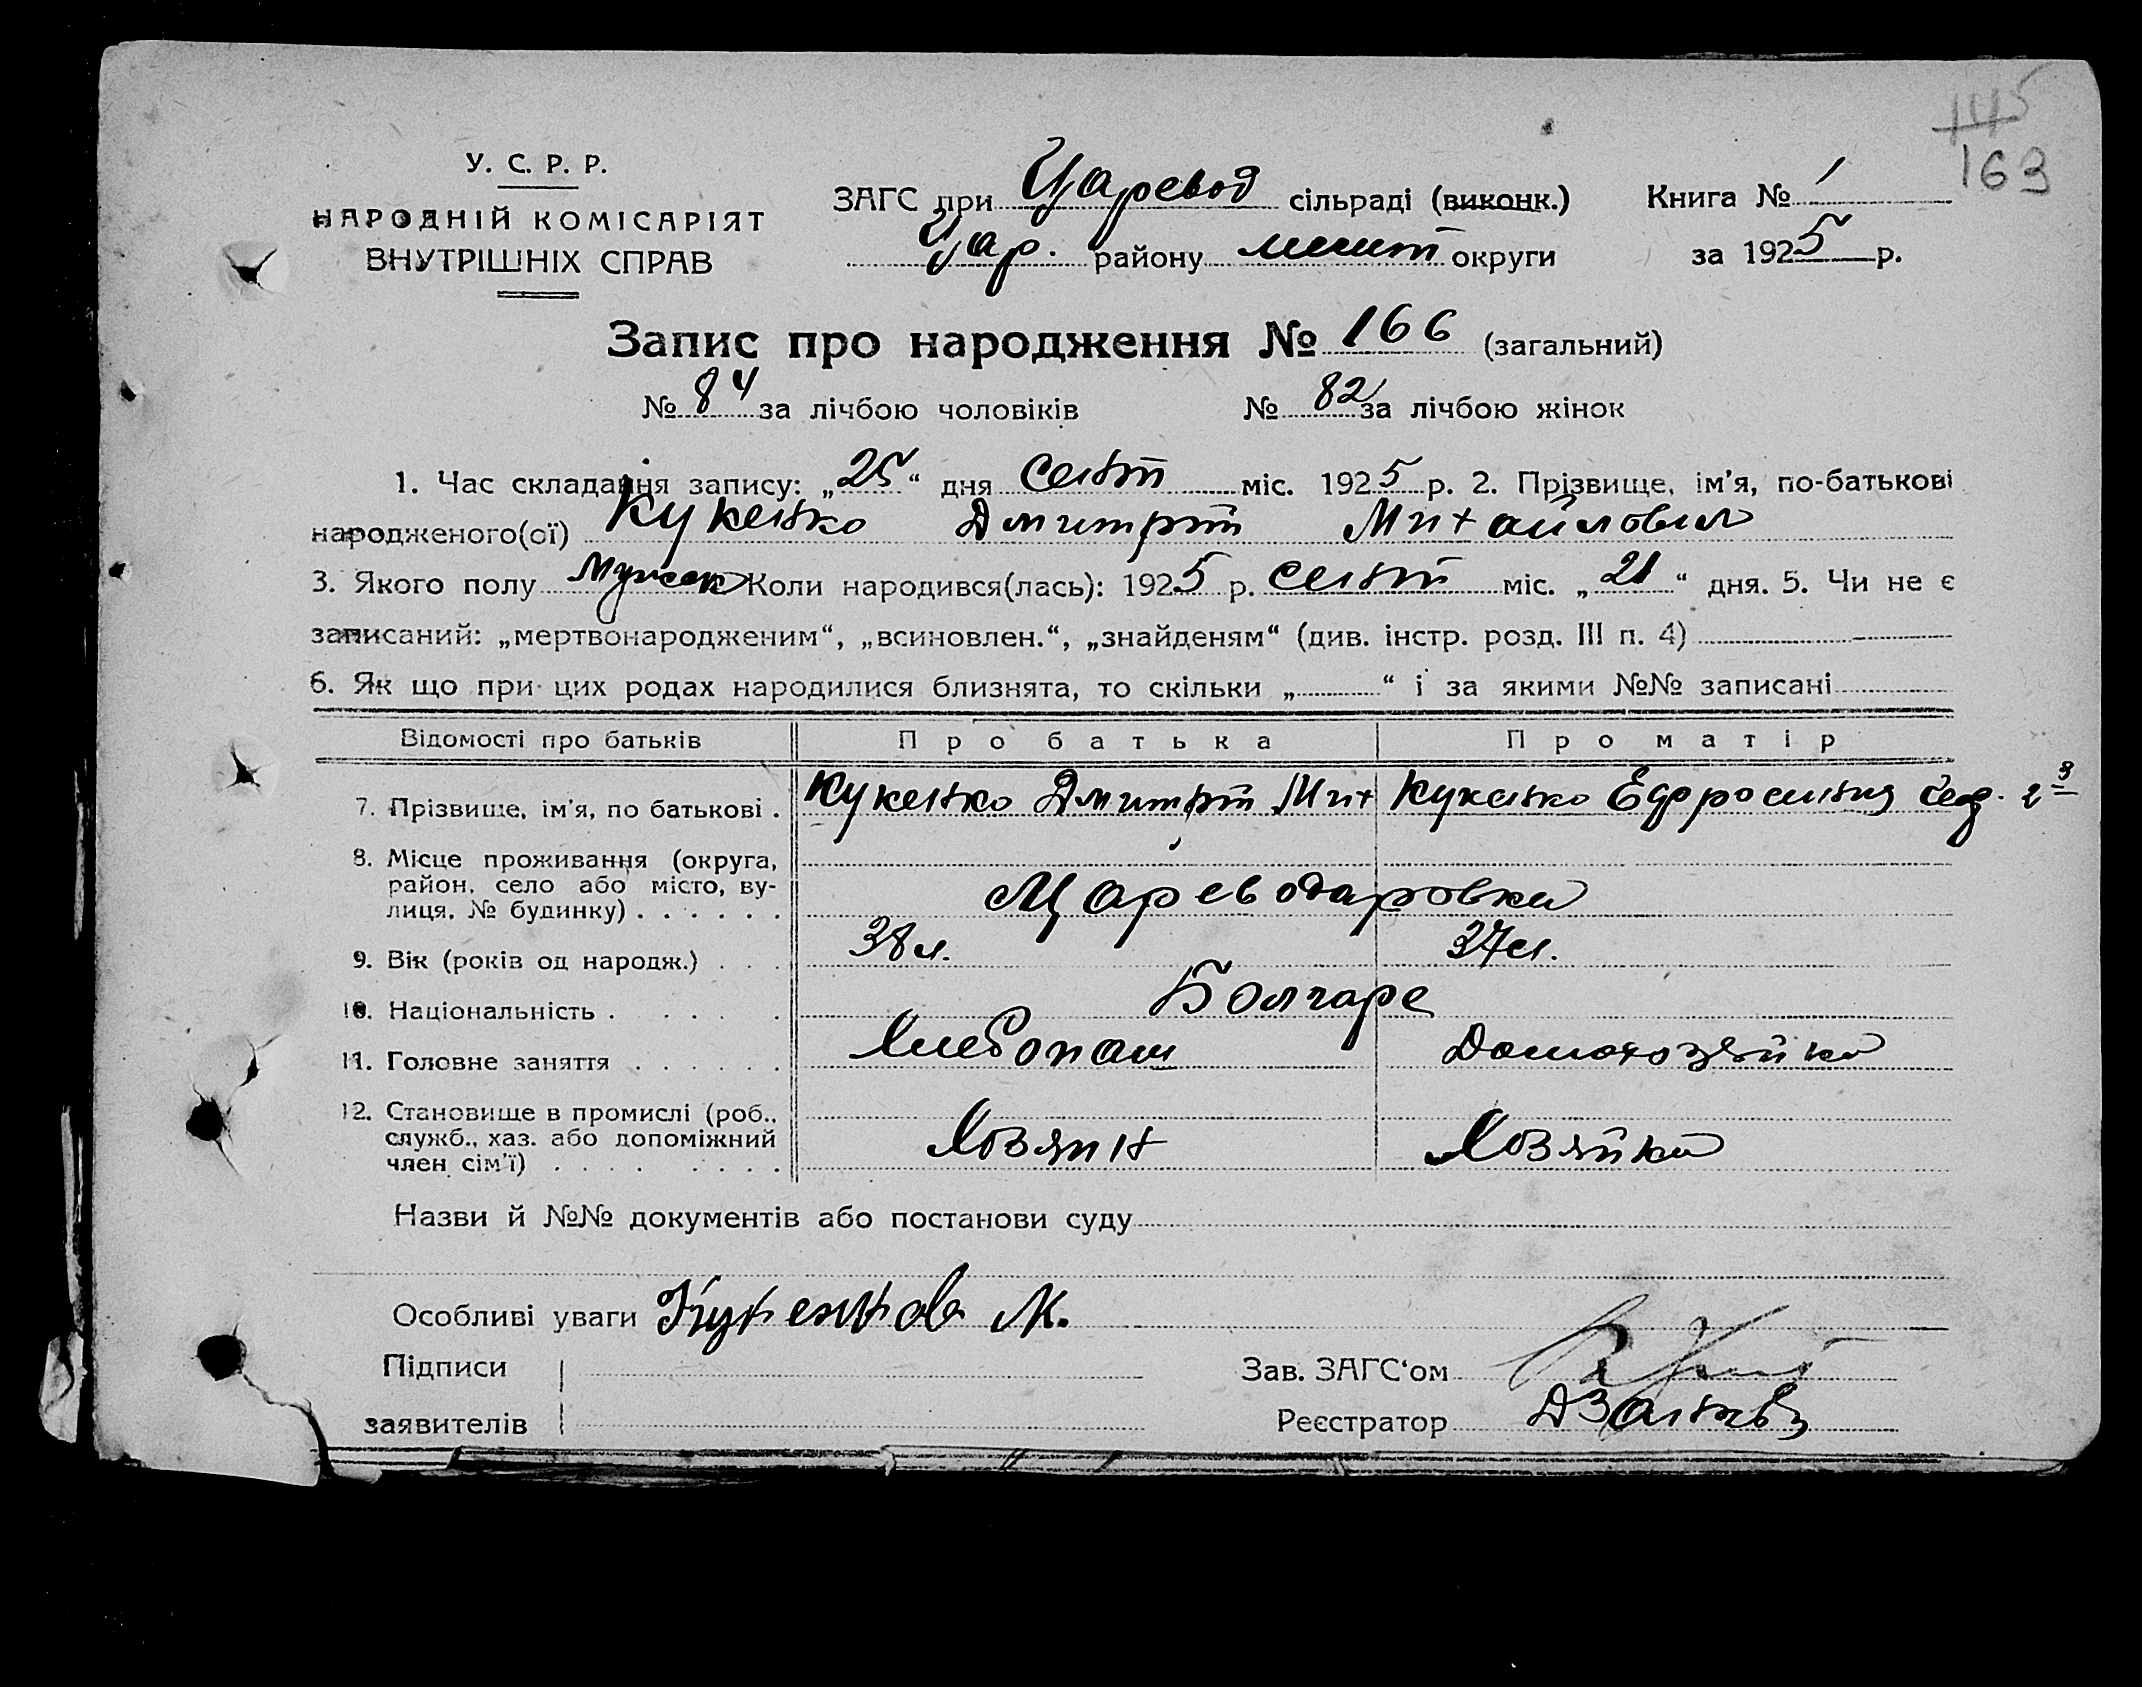 145
163
У. С. Р. Р.
НАРОДНІЙ КОМІСАРІЯТ
ВНУТРІШНІХ СПРАВ
ЗАГС при Царевод сільраді (виконк.) Книга № 1
Цар. району мелит округи за 1925 р.
Запис про народження № 166 (загальний)
№ 84 за лічбою чоловіків № 82 за лічбою жінок
1. Час складання запису: „25“ дня сент міс. 1925 р. 2. Прізвище, ім'я, по-батькові
народженого(ої) Кукенко Дмитрий Михайлович
3. Якого полу мужск Коли народився(лась): 1925 р. сент міс. „21“ дня. 5. Чи не є
записаний: „мертвонародженим“, „всиновлен.“, „знайденям“ (див. інстр. розд. III п. 4)
6. Як що при цих родах народилися близнята, то скільки „ “ і за якими №№ записані
Відомості про батьків Про батька Про матір
7. Прізвище, ім'я, по батькові . Кукенко Дмитрий Мих Кукенко Ефросиния Фед.
8. Місце проживання (округа,
район, село або місто, ву-
лиця, № будинку) . . . . . . Цареводаровка
9. Вік (років од народж.) . . . 38 л. 37 л.
10. Національність . . . . . Болгаре
11. Головне заняття . . . . . . Хлебопаш Домохозяйка
12. Становище в промислі (роб.,
служб., хаз. або допоміжний
член сім'ї) . . . . . . . . Хозяин Хозяйка
Назви й №№ документів або постанови суду
Особливі уваги М.
Підписи Зав. ЗАГС‘ом
заявителів Реєстратор